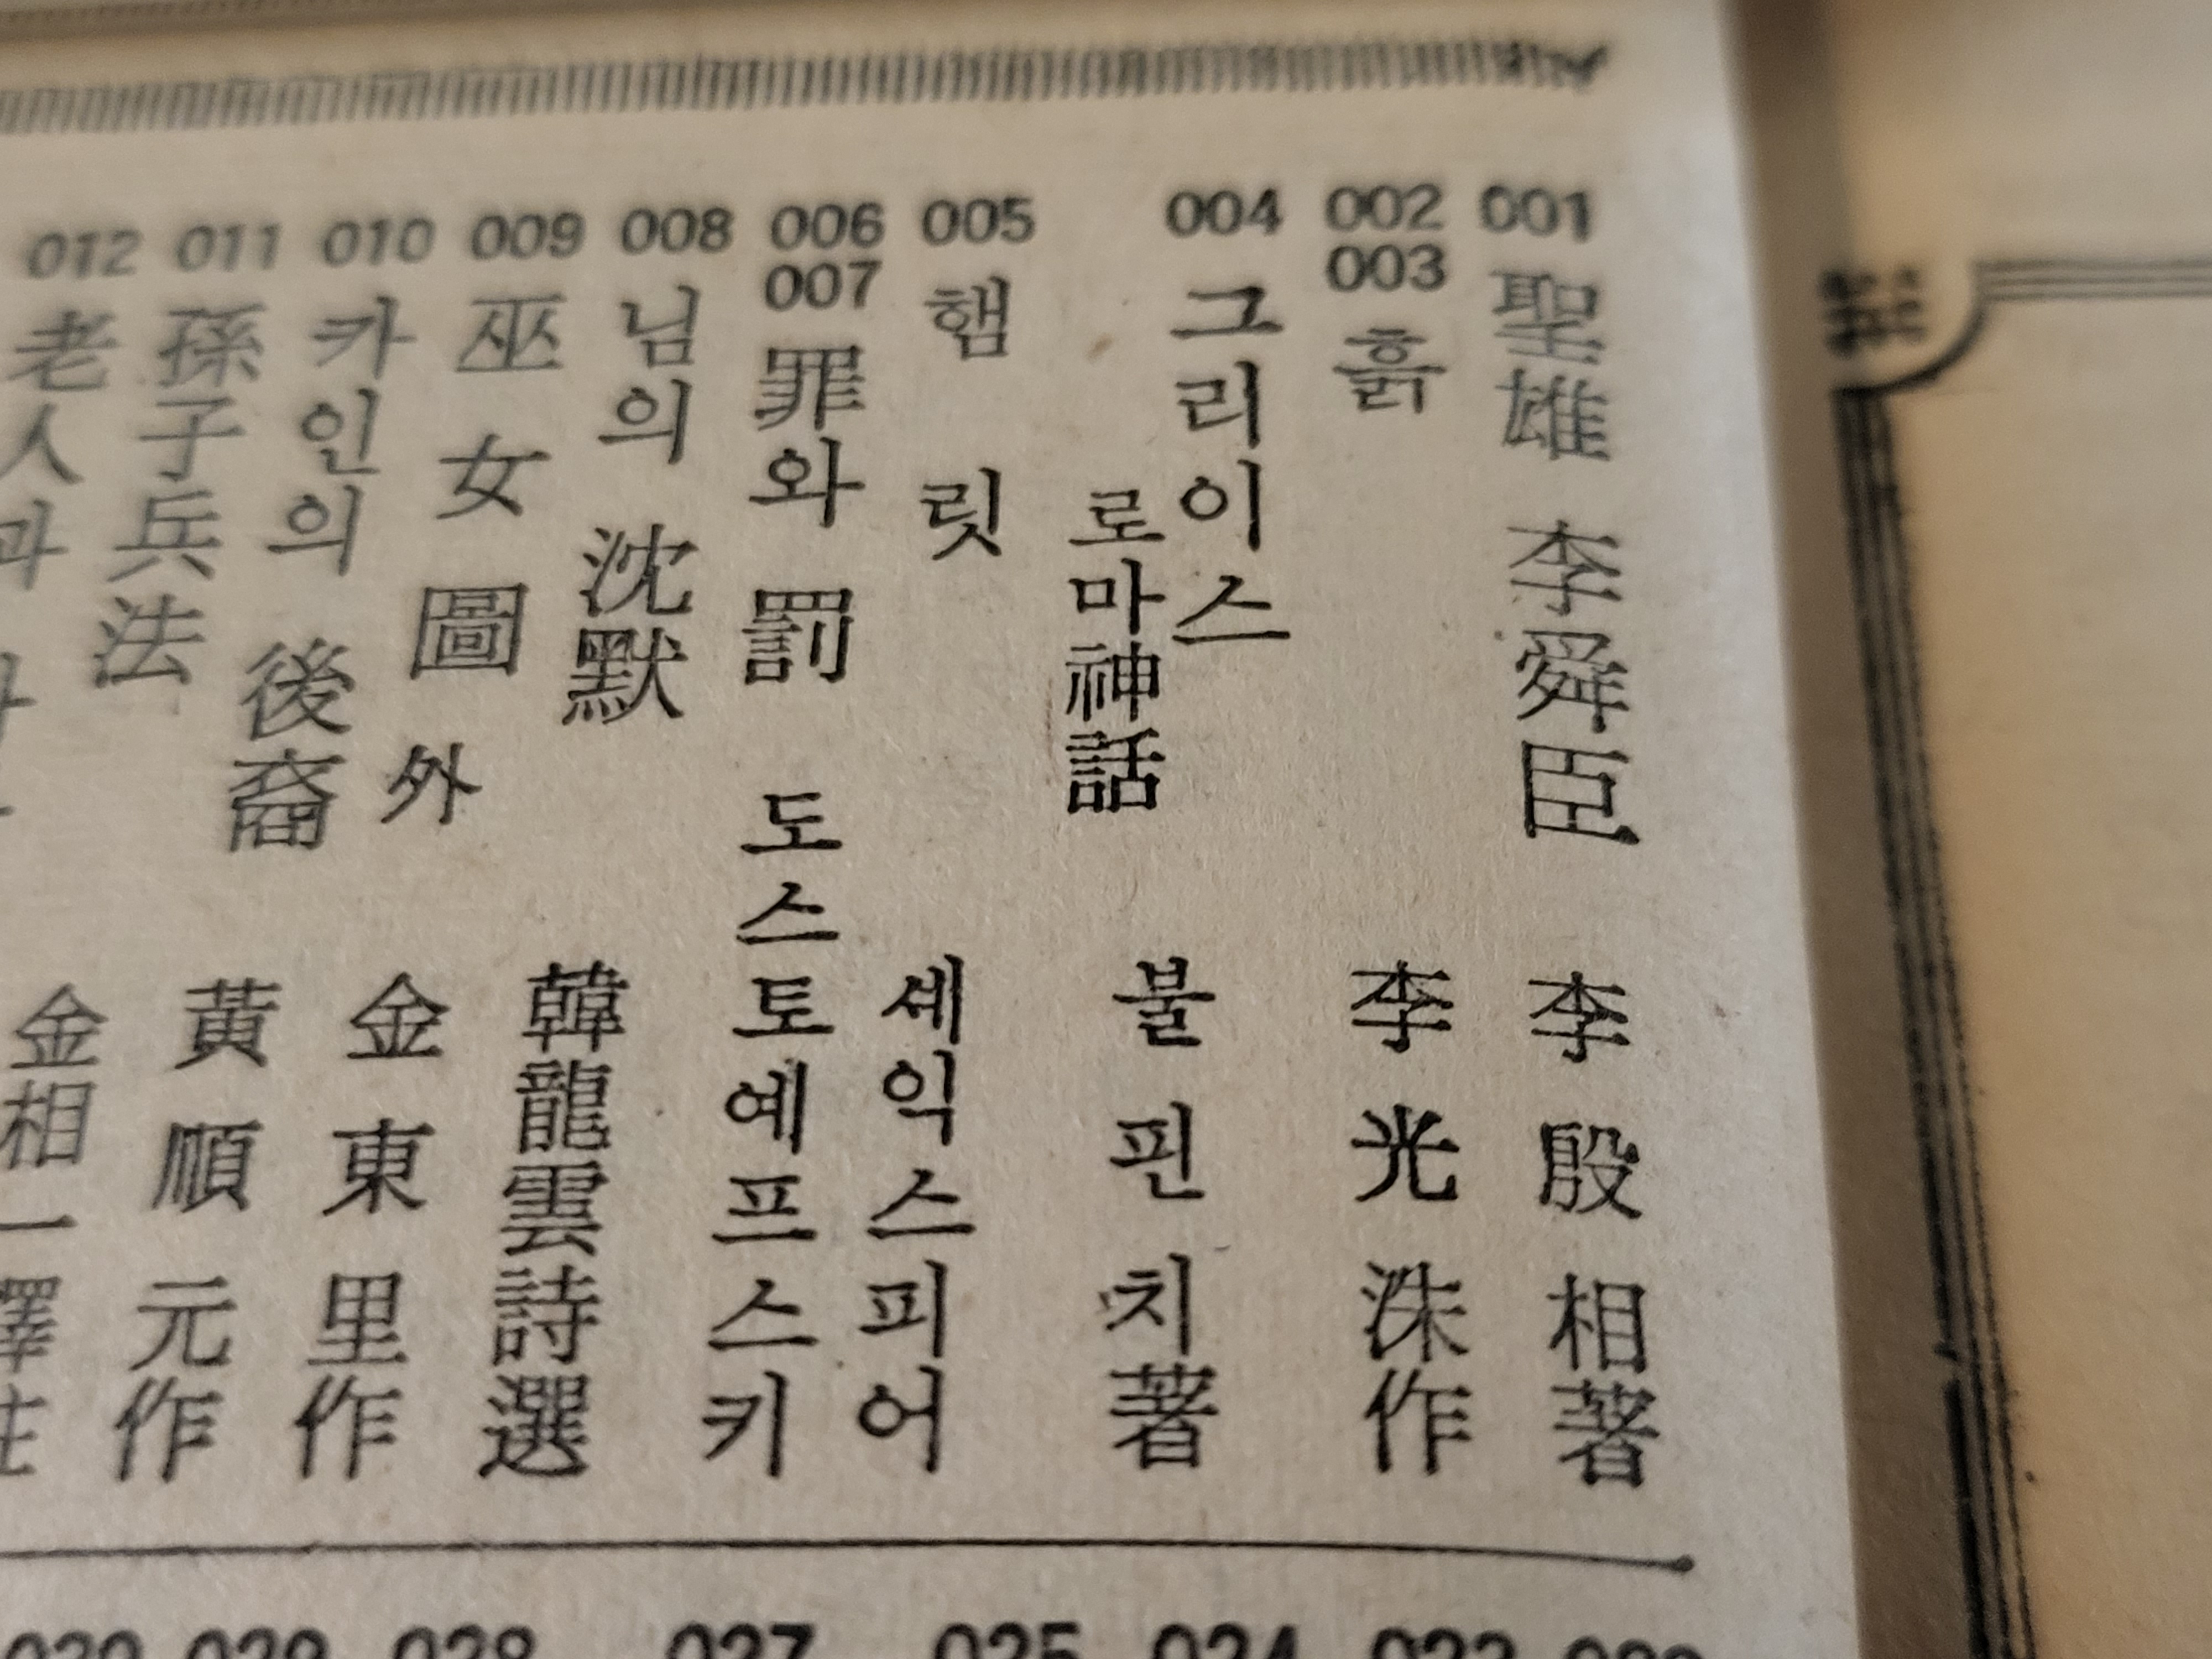 001 聖雄 李舜臣 李殷相著
002 003 흙 李光洙作
004 그리이스 로마神話 불핀치著
005 햄릿 셰익스피어
006 007 罪와 罰 도스토예프스키
008 님의 沈默 韓龍雲詩選
009 巫女圖外 金東里作
010 카인의 後裔 黃順元作
011 孫子兵法 金相一譯註
012 老人과